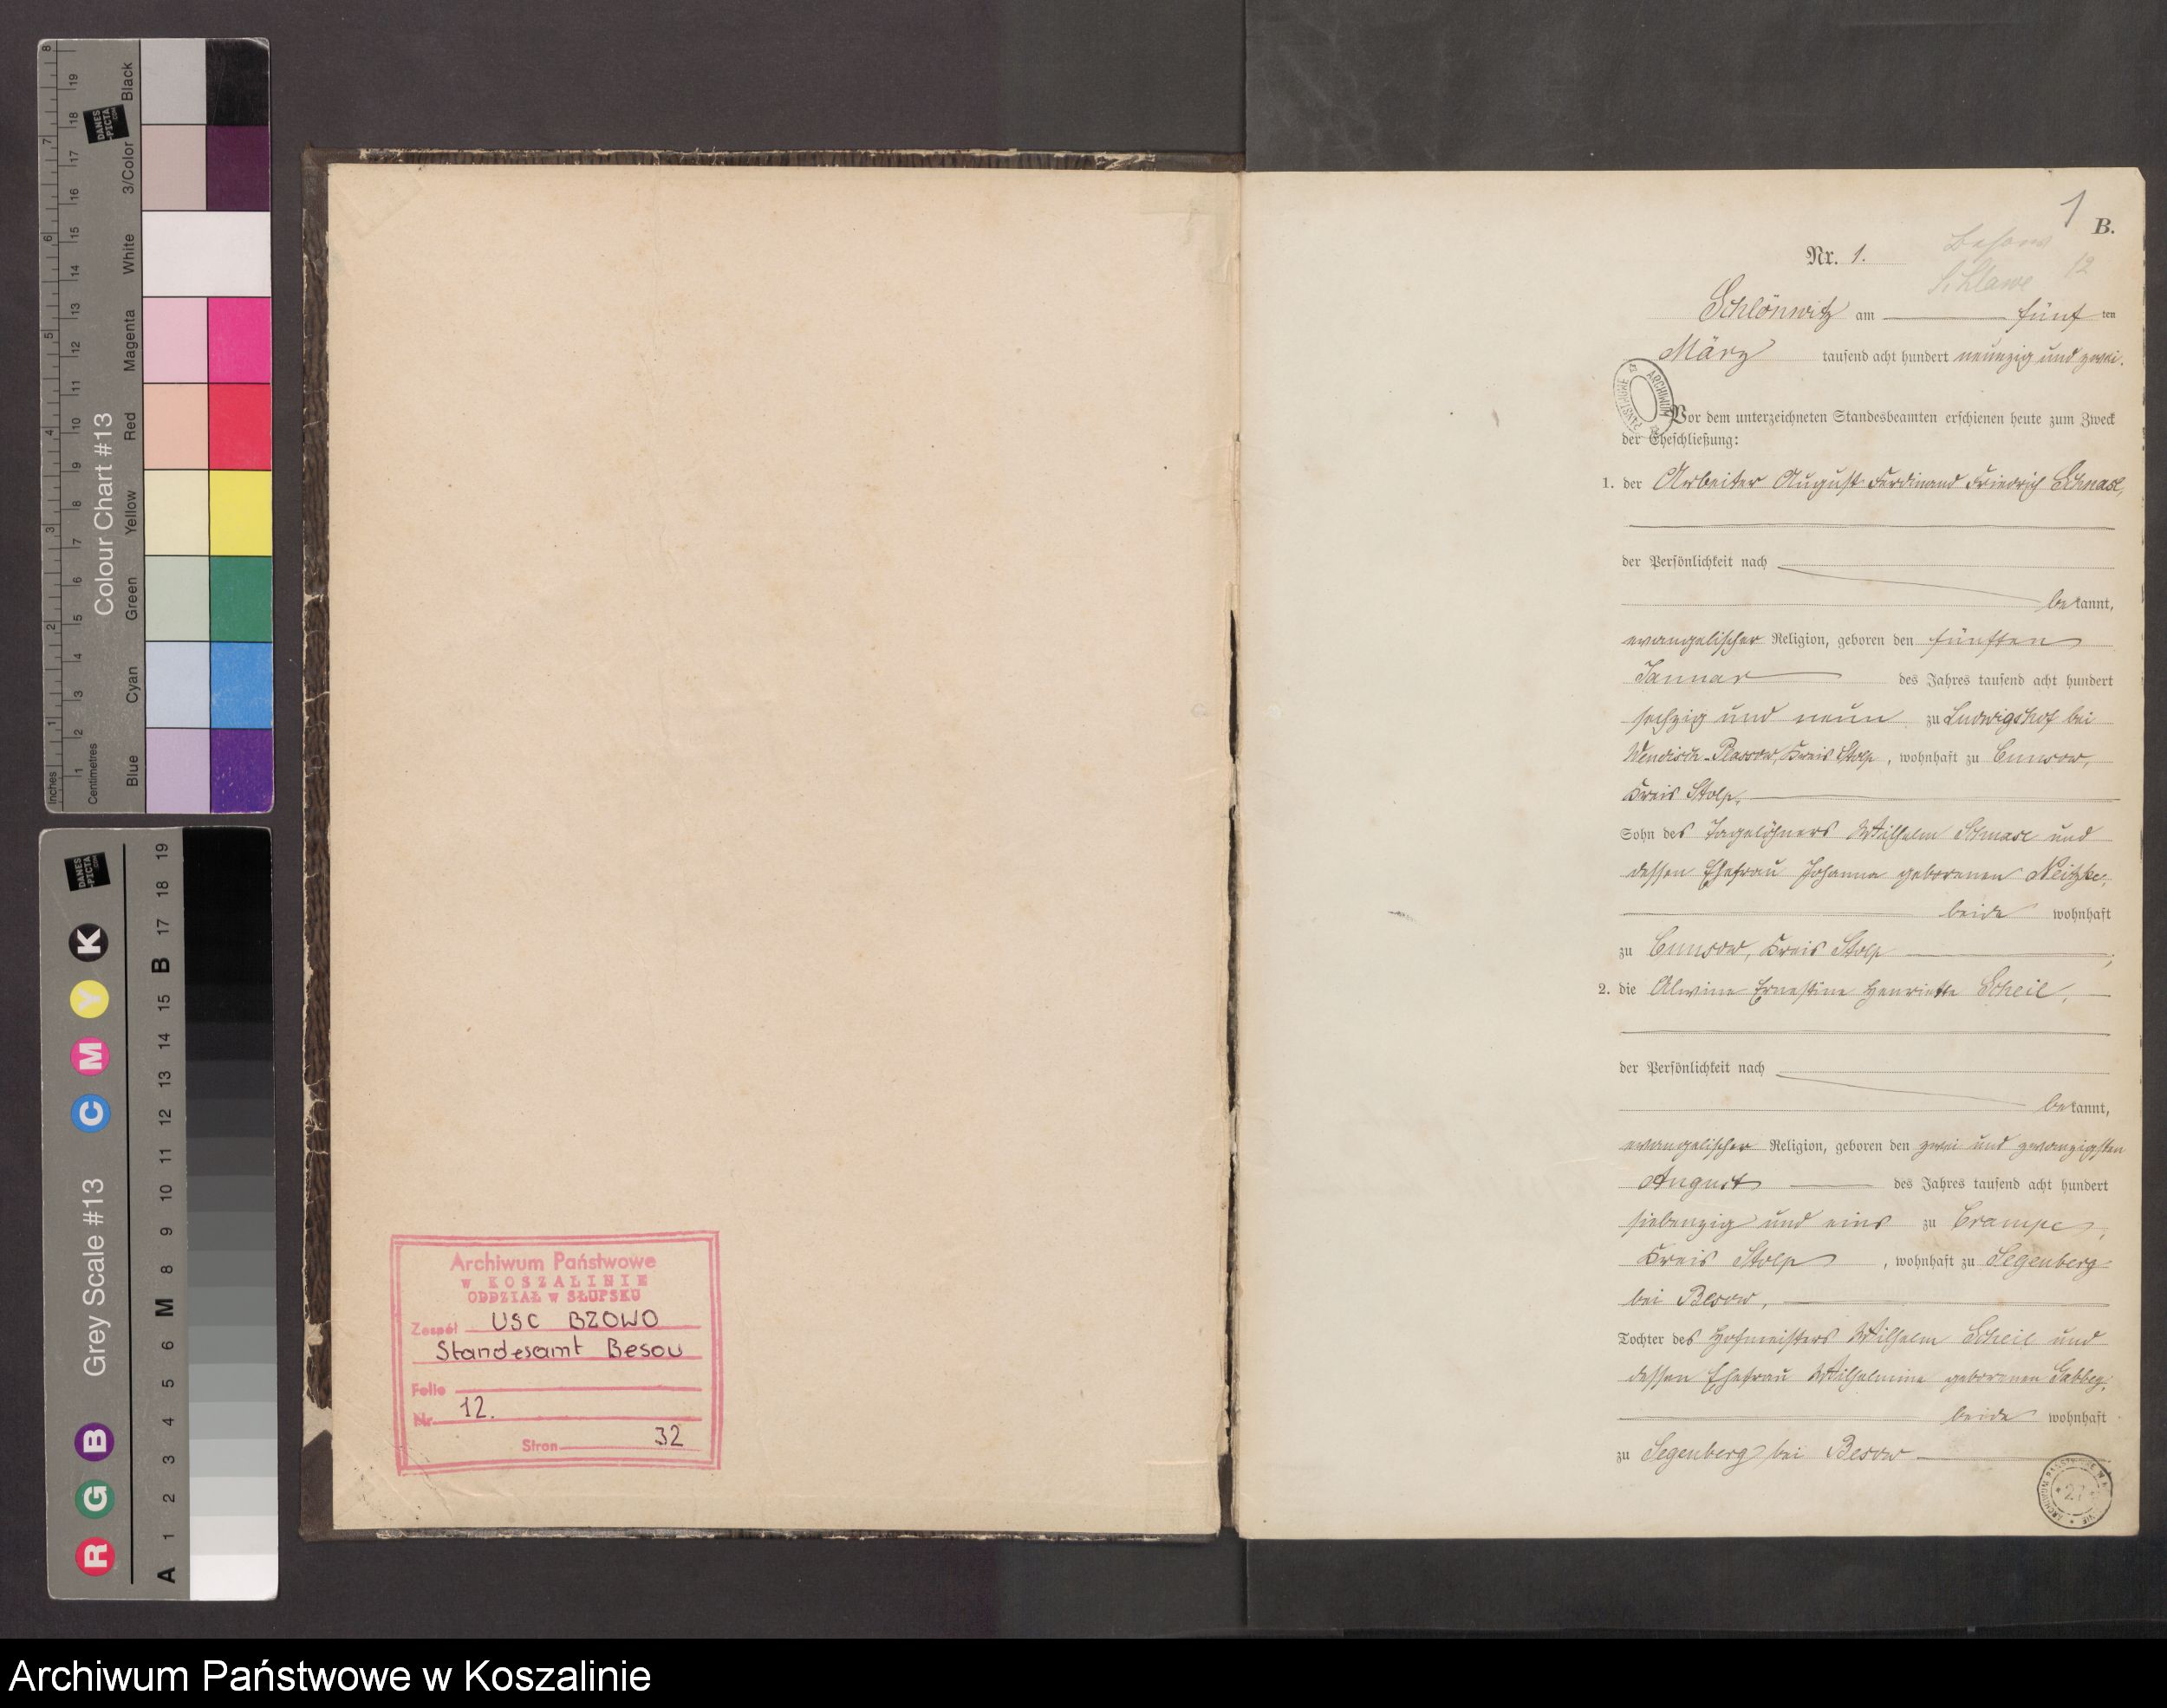 Colour Chart #13
Grey Scale #13
Archiwum Państwowe
w KOSZALINIE
ODDZIAŁ w SŁUPSKU
Zespół USC BZOWO
Standesamt Besow
Folio
Nr. 12.
Stron 32
1
B.
Besow
Schlawe 12
Nr. 1.
Schlönwitz am fünf ten
März tausend acht hundert neunzig und zwei.
Vor dem unterzeichneten Standesbeamten erschienen heute zum Zweck
der Eheschließung:
1. der Arbeiter August Ferdinand Friedrich Schnase,
der Persönlichkeit nach
bekannt,
evangelischer Religion, geboren den fünften
Januar des Jahres tausend acht hundert
sechzig und neun zu Ludwigshof bei
Wendisch-Plassow, Kreis Stolp, wohnhaft zu Cunsow,
Kreis Stolp,
Sohn des Tagelöhners Wilhelm Schnase und
dessen Ehefrau Johanna geborenen Neitzke,
beide wohnhaft
zu Cunsow, Kreis Stolp;
2. die Alwine Ernestine Henriette Scheil,
der Persönlichkeit nach
bekannt,
evangelischer Religion, geboren den zwei und zwanzigsten
August des Jahres tausend acht hundert
siebenzig und eins zu Crampe,
Kreis Stolp, wohnhaft zu Segenberg
bei Besow,
Tochter des Hofmeisters Wilhelm Scheil und
dessen Ehefrau Wilhelmine geborenen
beide wohnhaft
zu Segenberg bei Besow
Archiwum Państwowe w Koszalinie